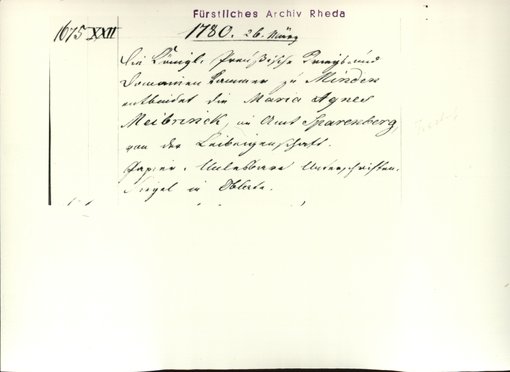 Fürstliches Archiv Rheda
1675 XXII 1780. 26. März
Die Königl. Preußische Kriegs- und
Domainen Kammer zu Minden
entbindet die Maria Agnes
Meibrinck, im Amt Sparenberg,
von der Leibeigenschaft.
Papier. Unlesbare Unterschriften.
Siegel in Oblate.